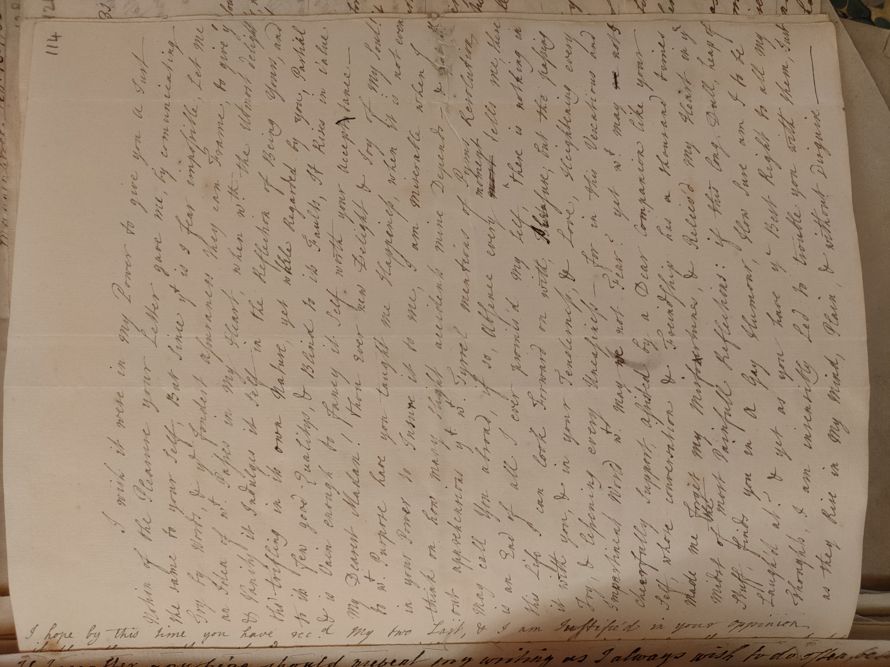 114
I wish it were in my Power to give you a Just
Notion of the Pleasure your Letter gave me, by communicating
the same to your Self. But since yt is I fear impossible Let me
Try by Words, & ye fondest assurances they can Frame, to give you
an Idea of wt Passes in My Heart, when wth the Utmost delight
& Vanity it Indulges it Self in the Reflection of Being Yours, and
tho' trifling in its own Nature, yet while Regarded by you, Partial
to its few good Qualitys, & Blind to its Faults, It Rises in Value
& is Vain enough to Fancy it Self worth your acceptance —
My Dearest Madan! thou ever new Delight & Joy of My Soul!
to wt Purpose have you taught me Happiness, when it is not even
in your Power to Insure it to me, I am Miserable when I
think on how many slight accidents mine Depends
out apprehensions yt wt Tyrrel mentions of Regmt Resolution
May call You abroad, if so, Absence every moment tells me, there
is an End of all I ever promis'd My Self, there is nothing in
this Life I can look forward on with Pleasure, but the passing
it with you, & in your Tenderness, & Love, Heightening every
Joy, & Lessening every Uneasiness — for in this Vexatious and
Impertinent World wt may we not Fear? yet wt may not I
Chearfully Support, assisted by a Dear Companion like your
Self whose conversation & Friendship has a thousand times
Made me Forgit my Misfortunes & Reliev'd My Heart in ye
Midst of the most Painfull Reflections: if this long, Dull, heap of
Stuff, finds you in a Gay Humour, How sure am I to be
Laugh'd at? & yet as you have ye Best Right to all My
Thoughts, I am insensibly Led to trouble you with them, Just
as they Rise in My Mind, Plain, & without Disguise
I hope by this time you have rec'd My two Last, & I am Justified in your opinion
should prevent my writing as I always wish to do often